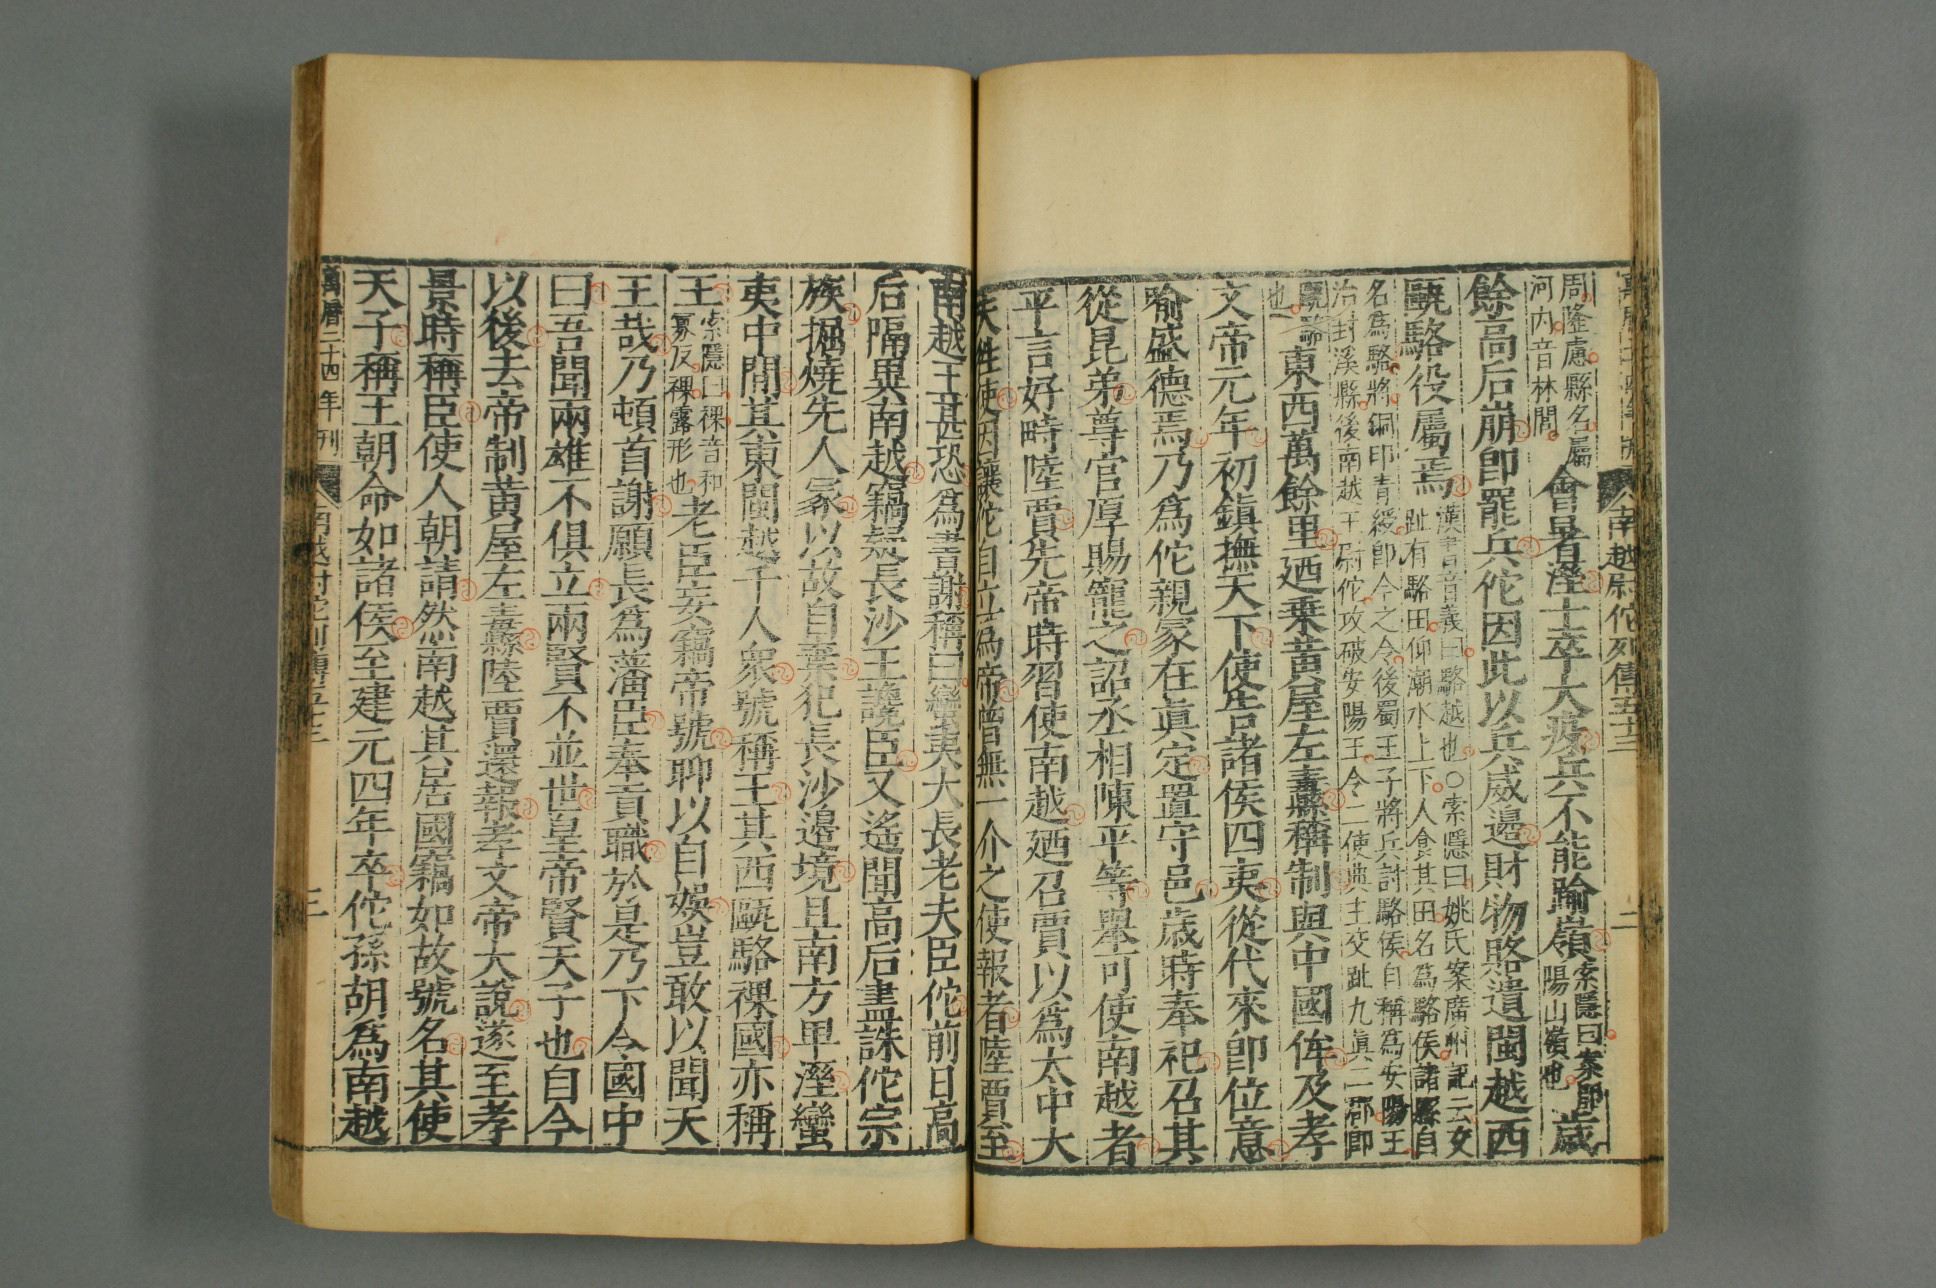 南越尉佗列傳五十三 二
周隆慮縣名屬
河內音林閭
會暑溼士卒大疫兵不能踰嶺
索隱曰案即
陽山嶺也
歲
餘高后崩即罷兵佗因此以兵威邊財物賂遺閩越西
甌駱役屬焉
漢書音義曰駱越也○索隱曰姚氏案廣州記云交
趾有駱田仰潮水上下人食其田名為駱侯諸縣自
名為駱將銅印青綬即今之令後蜀王子將兵討駱侯自稱為安陽王
治封溪縣後南越王尉佗攻破安陽王令二使典主交趾九真二郡即
甌駱
也
東西萬餘里廼乗黃屋左纛稱制與中國侔及孝
文帝元年初鎮撫天下使告諸侯四夷從代來即位意
喻盛德焉乃為佗親冢在眞定置守邑歲時奉祀召其
從昆弟尊官厚賜寵之詔丞相陳平等舉可使南越者
平言好畤陸賈先帝時習使南越廼召賈以為太中大
夫往使因讓佗自立為帝曾無一介之使報者陸賈至
南越王甚恐為書謝稱曰蠻夷大長老夫臣佗前日高
后隔異南越竊疑長沙王讒臣又遙聞高后盡誅佗宗
族掘燒先人冢以故自棄犯長沙邊境且南方卑溼蠻
夷中間其東閩越千人衆號稱王其西甌駱裸國亦稱
王
索隱曰裸音和
寡反裸露形也
老臣妄竊帝號聊以自娛豈敢以聞天
王哉乃頓首謝願長為藩臣奉貢職於是乃下令國中
曰吾聞兩雄不俱立兩賢不並世皇帝賢天子也自今
以後去帝制黃屋左纛陸賈還報孝文帝大說遂至孝
景時稱臣使人朝請然南越其居國竊如故號名其使
天子稱王朝命如諸侯至建元四年卒佗孫胡為南越
萬曆二十四年刊 南越尉佗列傳五十三 三